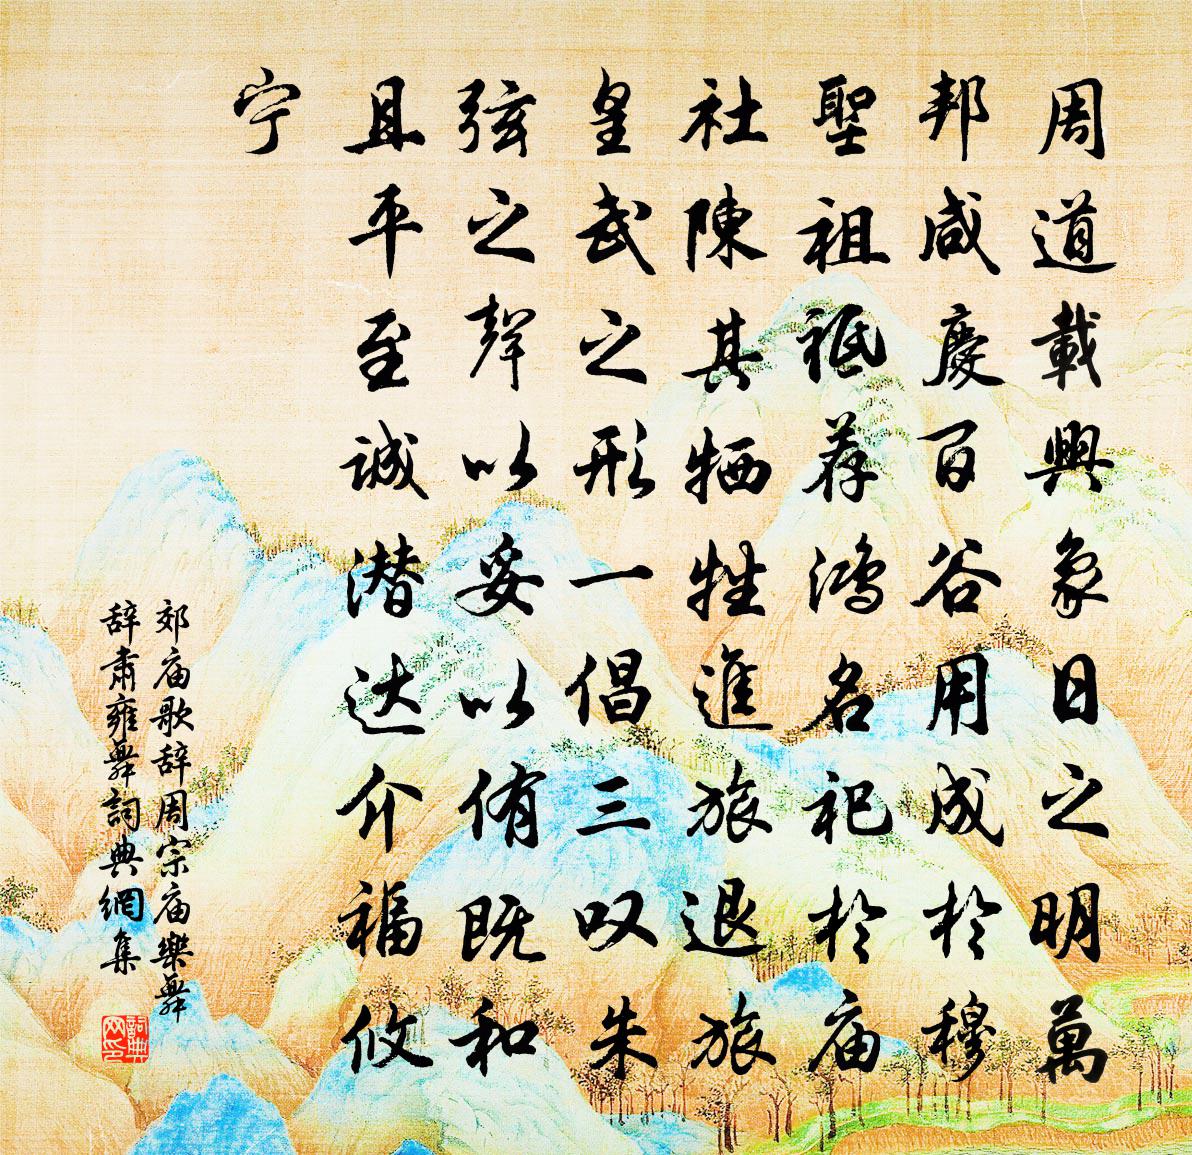 周道載興象日之明萬
邦咸慶百谷用成於穆
聖祖祗荐鴻名祀於庙
社陳其牺牲進旅退旅
皇武之形一倡三叹朱
弦之聲以妥以侑既和
且平至诚潜达介福攸
宁
郊庙歌辞周宗庙樂舞
辞肃雍舞詞典網集
詞典
网印